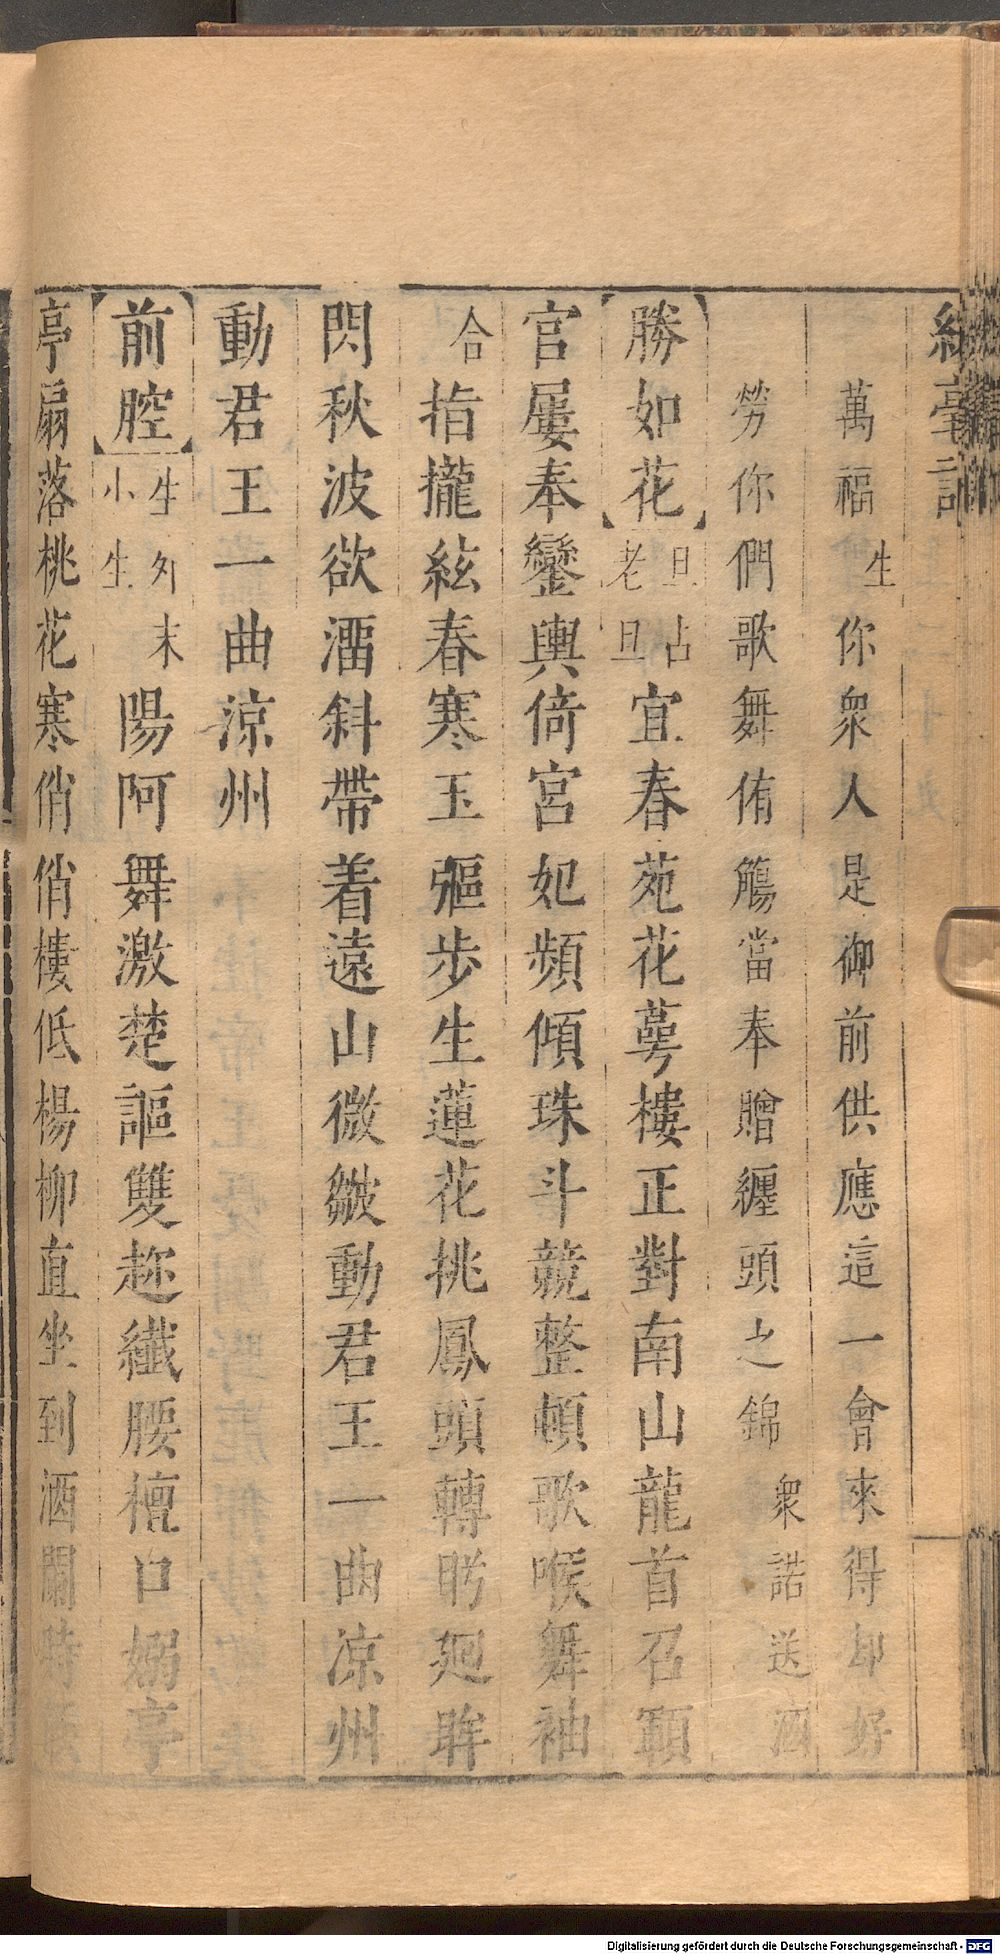 萬福生你衆人是御前供應這一會來得却好
勞你們歌舞侑觴當奉贈纏頭之錦衆諾送酒
【勝如花】旦占老旦宜春苑花萼樓正對南山龍首召顓
官屢奉鑾輿倚宮妃頻傾珠斗競整頓歌喉舞袖
合指攏絃春寒玉彄步生蓮花挑鳳頭轉盻廻眸
閃秋波欲溜斜帶着遠山微皺動君王一曲涼州
動君王一曲涼州
【前腔】生外末小生陽阿舞激楚謳雙趂纖腰檀口嫋亭
亭扇落桃花寒俏俏樓低楊柳直坐到酒闌時
Digitalisierung gefördert durch die Deutsche Forschungsgemeinschaft - DFG